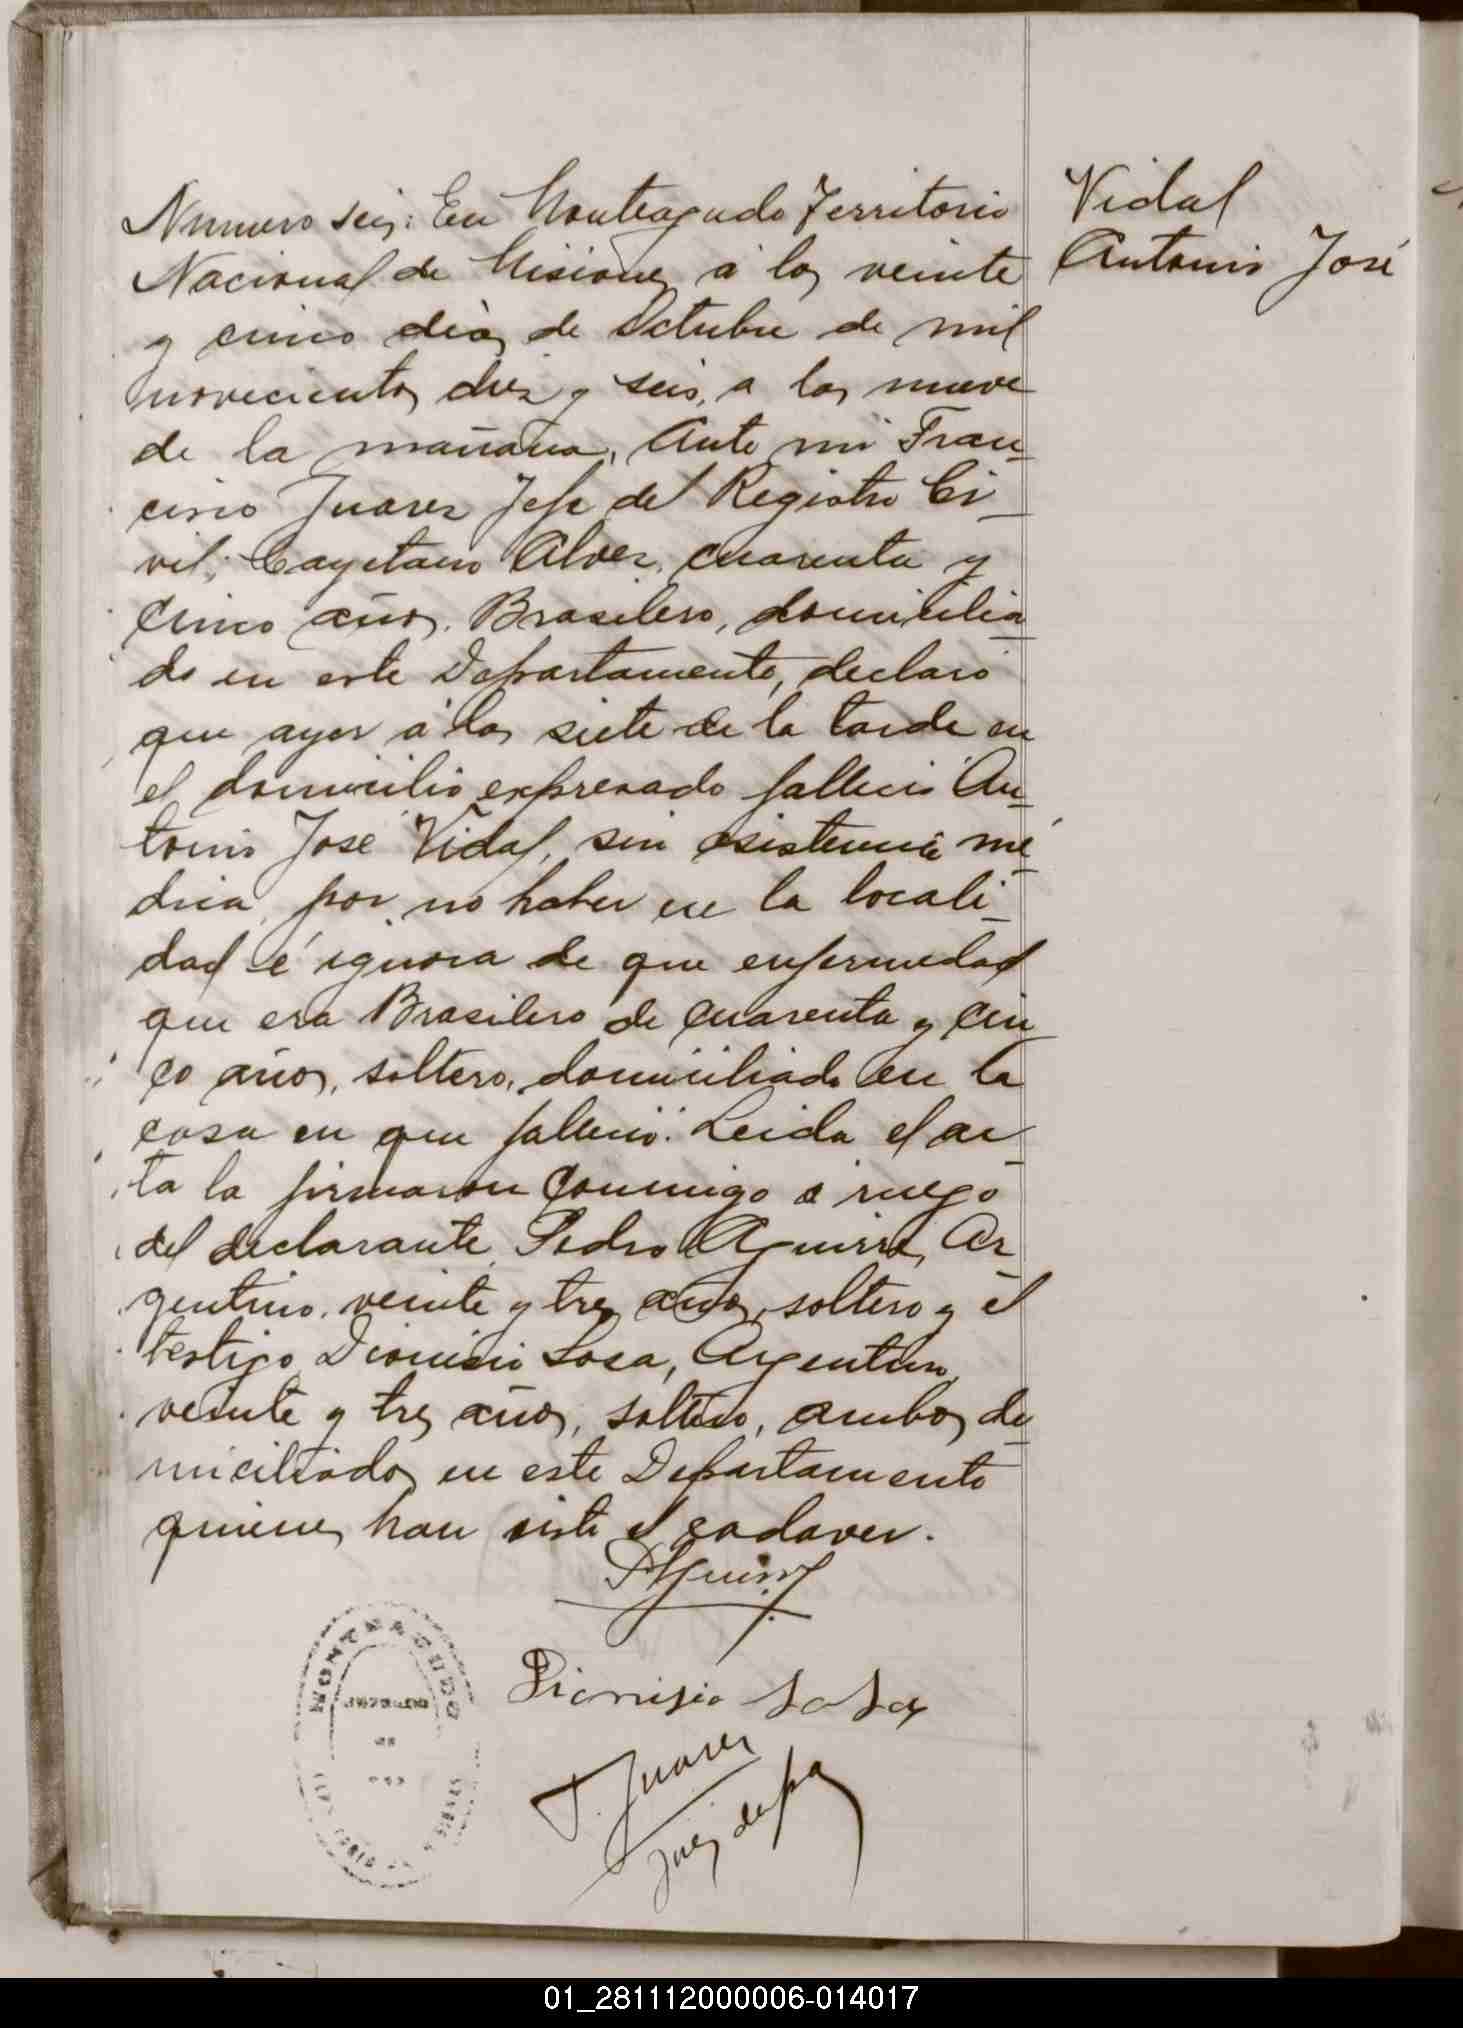 Vidal
Antonio José
Numero seis: En Monteagudo Territorio
Nacional de Misiones á los veinte
y cinco dias de Octubre de mil
novecientos diez y seis, a las nueve
de la mañana, Ante mi Fran-
cisco Juarez Jefe del Registro Ci-
vil; Cayetano Alvez, cuarenta y
cinco años, Brasilero, domicilia-
do en este Departamento, declaró
que ayer á las siete de la tarde en
el domicilio expresado falleció An-
tonio José Vidal, sin asistencia mé-
dica, por no haber en la locali-
dad é ignora de que enfermedad
que era Brasilero de cuarenta y cin-
co años, soltero, domiciliado en la
casa en que falleció. Leida el ac-
ta la firmaron conmigo á ruego
del declarante Pedro Aguirre, Ar-
gentino, veinte y tres años, soltero y el
testigo Dionisio Sosa, Argentino,
veinte y tres años, soltero, ambos do-
miciliados en este Departamento
quienes han visto el cadaver.
PAguirre
Dionisio Sosa
F. Juarez
Juez de paz
MONTEAGUDO
JUZGADO
DE
PAZ
01_281112000006-014017